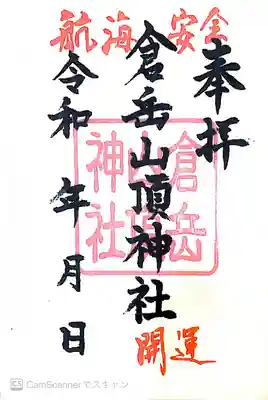 航海安全
奉拝
倉岳山頂神社
令和 年 月 日
倉岳
山頂
神社
開運
CS CamScanner でスキャン